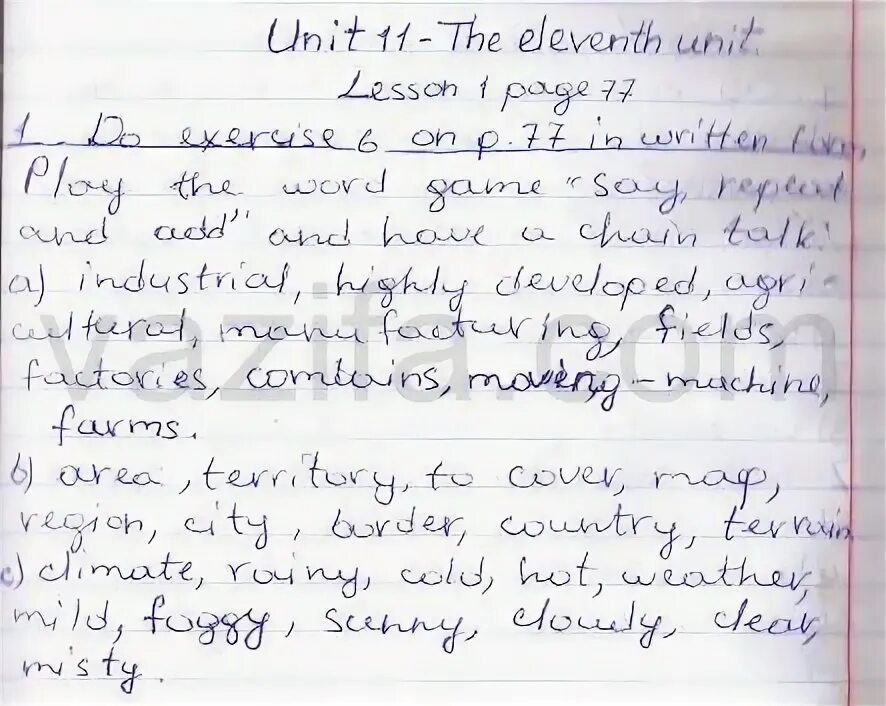 Unit 11 - The eleventh unit.
Lesson 1 page 77
1. Do exercise 6 on p. 77 in written form.
Play the word game "Say, repeat
and add" and have a chain talk:
a) industrial, highly developed, agri-
cultural, manufacturing, fields,
factories, combains, moving-machine,
farms.
b) area, territory, to cover, map,
region, city, border, country, terrain
c) climate, rainy, cold, hot, weather,
mild, foggy, sunny, cloudy, clear,
misty.
vazifa.com